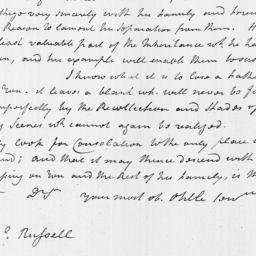 thize very sincerely with his Family and
Reason to lament his Separation from them. H
least valuable part of the Inheritance wh. he ha
and his example will enable them
I know what it is to lose a Fathe
leaves a blank wh. will never be
imperfectly by the Recollection and Shades of
Scenes wh. cannot again be realized.
look for Consolation to the only place w
and that it may thence descend with
on you and the Rest of his Family, is m
Dr. Sr. your most ob. Hble Serv
Russell